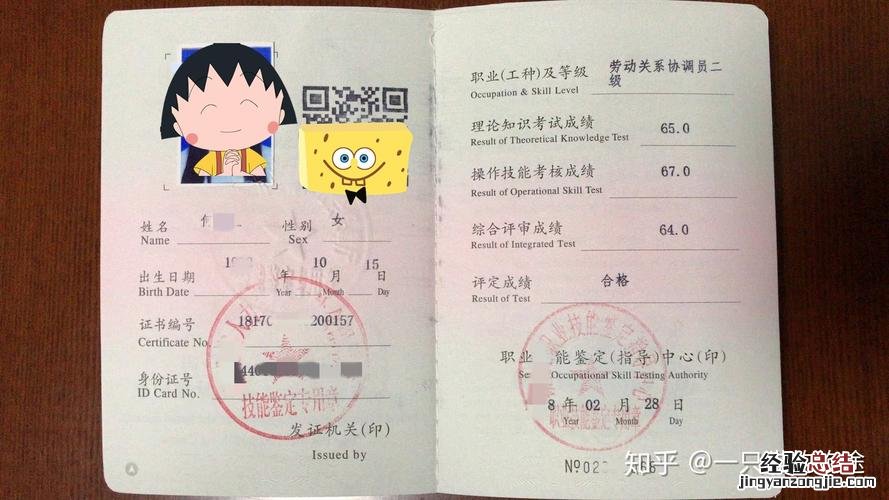 姓名
Name
性别 女
Sex
出生日期 年 10 月 15 日
Birth Date Year Month Day
证书编号 1817 200157
Certificate No.
身份证号
ID Card No.
技能鉴定专用章
发证机关(印)
Issued by
职业(工种)及等级 劳动关系协调员二级
Occupation & Skill Level
理论知识考试成绩 65.0
Result of Theoretical Knowledge Test
操作技能考核成绩 67.0
Result of Operational Skill Test
综合评审成绩 64.0
Result of Integrated Test
评定成绩 合格
Result of Test
职业 能鉴定(指导)中心(印)
Occupational Skill Testing Authority
职业技能鉴定
8 年 02 月 28 日
Year Month Day
№02 68
知乎 @一只
经验总结
jingyanzongjie.com